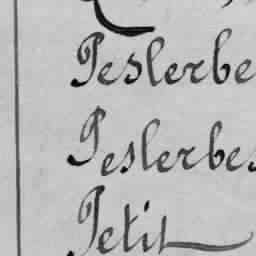 Peslerbe
Peslerbes
Petit